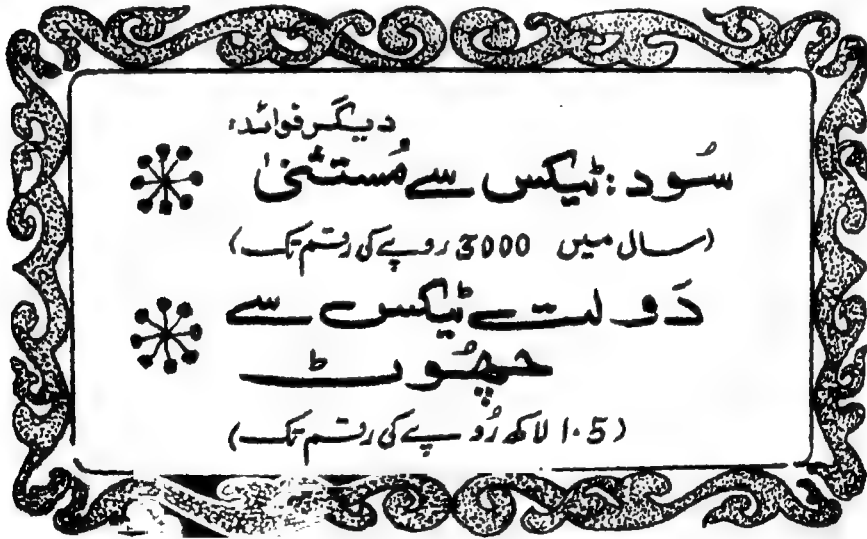 دیگر فوائد:
سُود: ٹیکس سے مُستثنیٰ
(سال میں 3000 روپے کی رقم تک)
دَولت ٹیکس سے
چھُوٹ
(1.5 لاکھ رُوپے کی رقم تک)